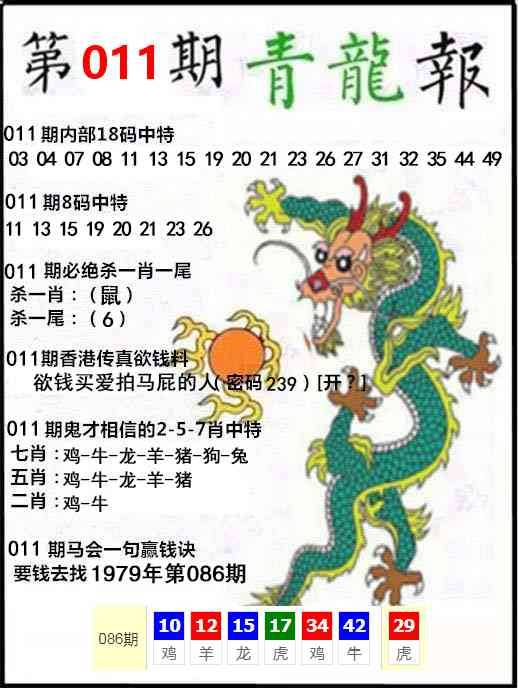 第011期 青龍報
011期内部18码中特
03 04 07 08 11 13 15 19 20 21 23 26 27 31 32 35 44 49
011期8码中特
11 13 15 19 20 21 23 26
011 期必绝杀一肖一尾
杀一肖：（鼠）
杀一尾：（6）
011期香港传真欲钱料
欲钱买爱拍马屁的人(密码239)[开？]
011期鬼才相信的2-5-7肖中特
七肖：鸡-牛-龙-羊-猪-狗-兔
五肖：鸡-牛-龙-羊-猪
二肖：鸡-牛
011 期马会一句赢钱诀
要钱去找1979年第086期
086期 10 12 15 17 34 42 29
鸡 羊 龙 虎 鸡 牛 虎